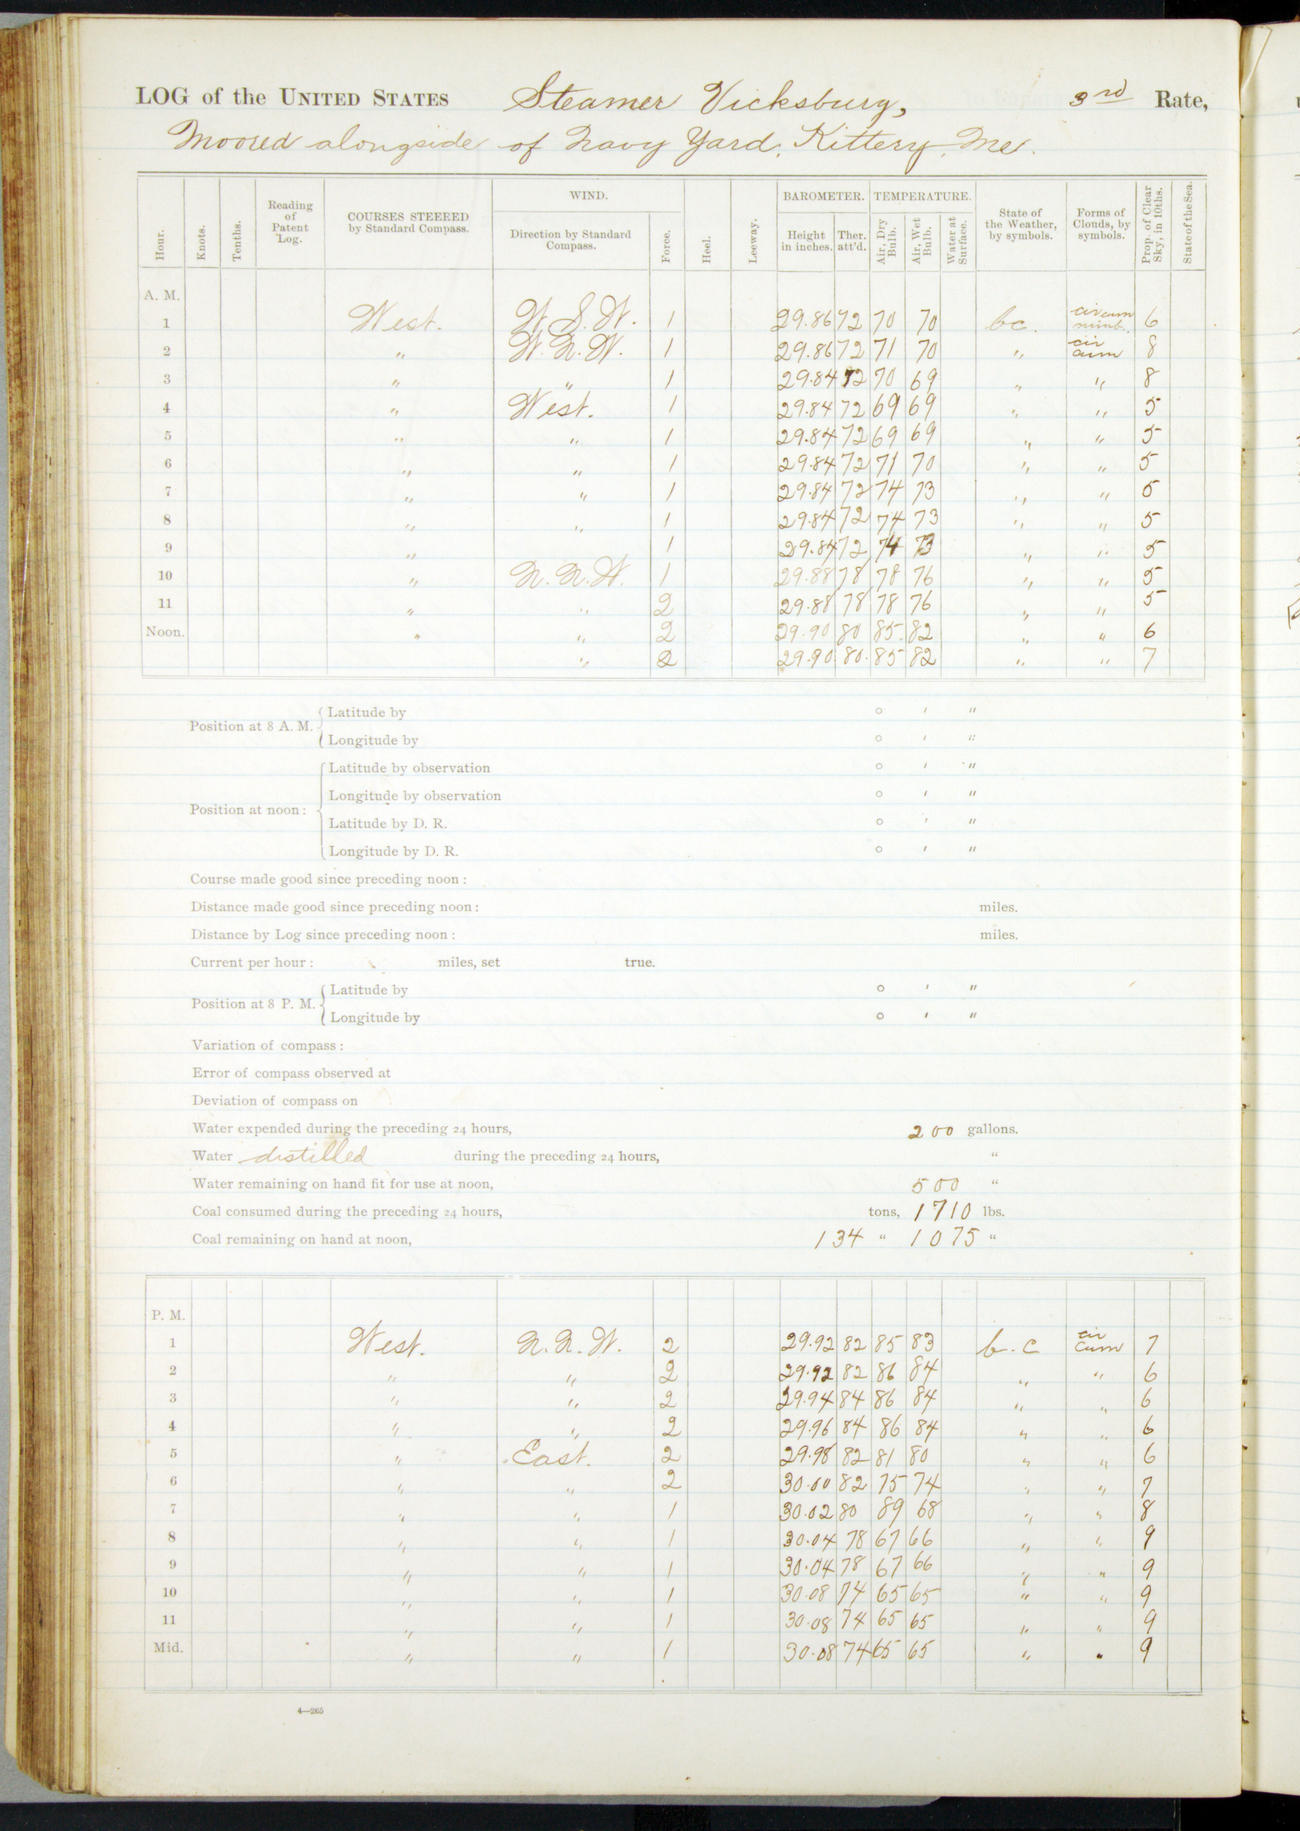 LOG of the UNITED STATES Steamer Vicksburg, 3rd Rate,
Moored alongside of Navy Yard, Kittery, Me.
Hour. Knots. Tenths. Reading of Patent Log. COURSES STEERED by Standard Compass. WIND. Direction by Standard Compass. Force. Heel. Leeway. BAROMETER. Height in inches. Ther. att'd. TEMPERATURE. Air, Dry Bulb. Air, Wet Bulb. Water at Surface. State of the Weather, by symbols. Forms of Clouds, by symbols. Prop. of Clear Sky, in 10ths. State of the Sea.
A. M.
1 West. W.S.W. 1 29.86 72 70 70 bc. cir cum nimb. 6
2 " W.N.W. 1 29.86 72 71 70 " cir cum 8
3 " " 1 29.84 72 70 69 " " 8
4 " West. 1 29.84 72 69 69 " " 5
5 " " 1 29.84 72 69 69 " " 5
6 " " 1 29.84 72 71 70 " " 5
7 " " 1 29.84 72 74 73 " " 5
8 " " 1 29.84 72 74 73 " " 5
9 " 1 29.84 72 74 73 " " 5
10 " N.N.W. 1 29.88 78 78 76 " " 5
11 " " 2 29.88 78 78 76 " " 5
Noon. " " 2 29.90 80 85 82 " " 6
" 2 29.90 80. 85 82 " " 7
Position at 8 A. M. Latitude by ° ' "
Longitude by ° ' "
Position at noon: Latitude by observation ° ' "
Longitude by observation ° ' "
Latitude by D. R. ° ' "
Longitude by D. R. ° ' "
Course made good since preceding noon:
Distance made good since preceding noon: miles.
Distance by Log since preceding noon: miles.
Current per hour: miles, set true.
Position at 8 P. M. Latitude by ° ' "
Longitude by ° ' "
Variation of compass:
Error of compass observed at
Deviation of compass on
Water expended during the preceding 24 hours, 200 gallons.
Water distilled during the preceding 24 hours, "
Water remaining on hand fit for use at noon, 500 "
Coal consumed during the preceding 24 hours, tons, 1710 lbs.
Coal remaining on hand at noon, 134 " 1075 "
P. M.
1 West. N.N.W. 2 29.92 82 85 83 b.c cir cum 7
2 " " 2 29.92 82 86 84 " " 6
3 " " 2 29.94 84 86 84 " " 6
4 " " 2 29.96 84 86 84 " " 6
5 " East. 2 29.98 82 81 80 " " 6
6 " " 2 30.00 82 75 74 " " 7
7 " " 1 30.02 80 89 68 " " 8
8 " " 1 30.04 78 67 66 " " 9
9 " " 1 30.04 78 67 66 " " 9
10 " " 1 30.08 74 65 65 " " 9
11 " " 1 30.08 74 65 65 " " 9
Mid. " " 1 30.08 74 65 65 " " 9
4—265